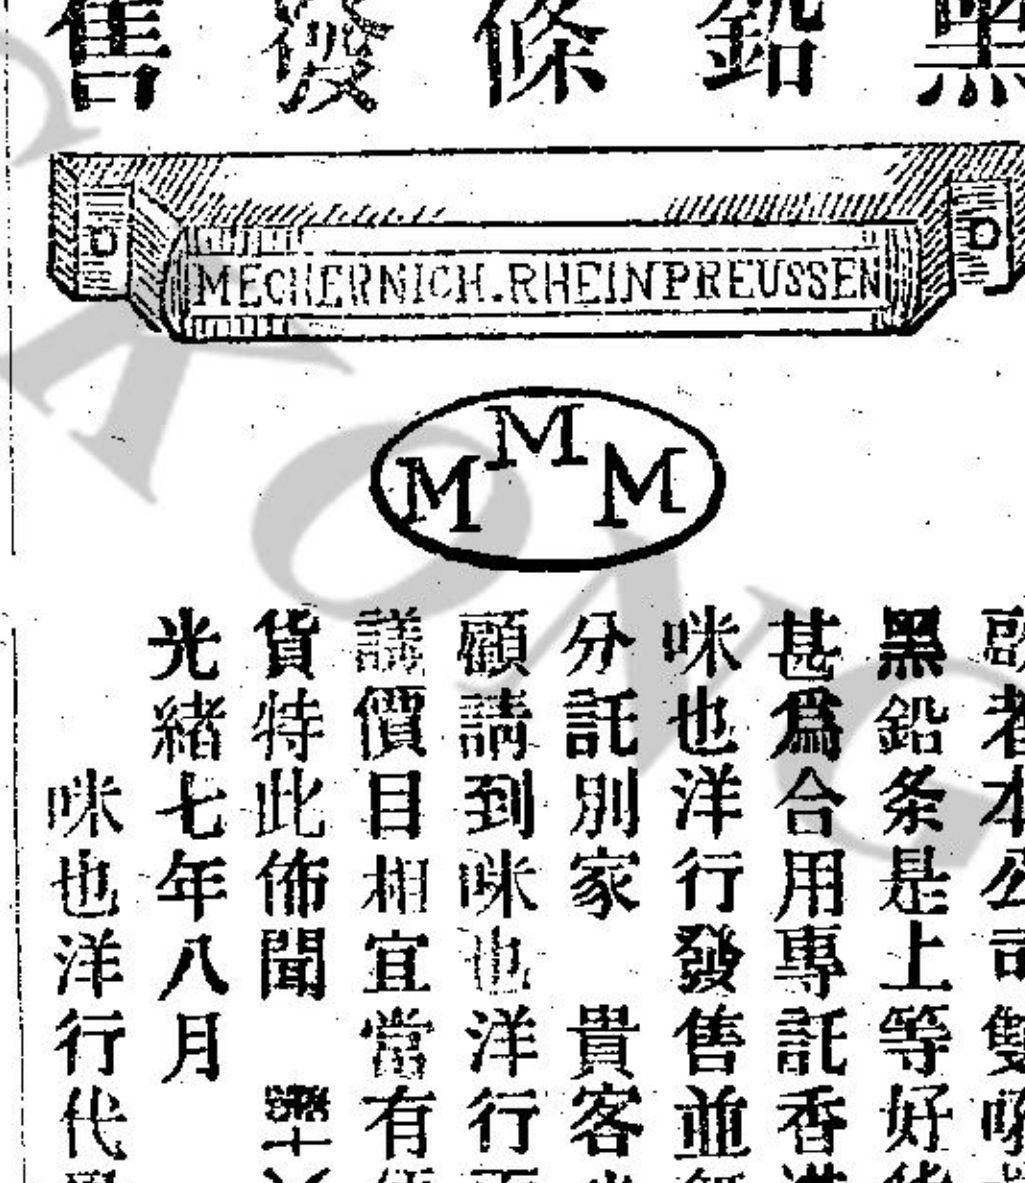 黑鉛條發售
MECHERNICH.RHEINPREUSSEN
M M M
啟者本公司雙
黑鉛条是上等好
甚爲合用專託香港
咪也洋行發售並
分託別家 貴客
顧請到咪也洋行
議價目相宜當有
貨特此佈聞
光緒七年八月
咪也洋行代
KONG